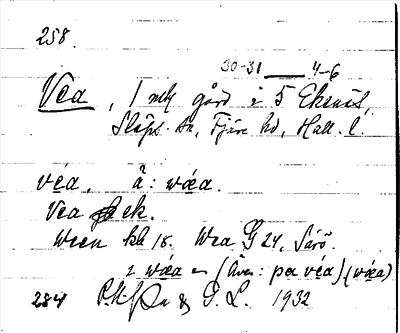 258.
30-31 — 4-6
Vea, 1 mtl gård i 5 Ekenäs,
Släps sn, Fjäre hd, Hall. l.
véa. å: wæa.
Vea ek.
Ween kb 18. Wea G 24, Särö.
i wæa - (Även: på véa) (wæa)
284 G. L. 1932